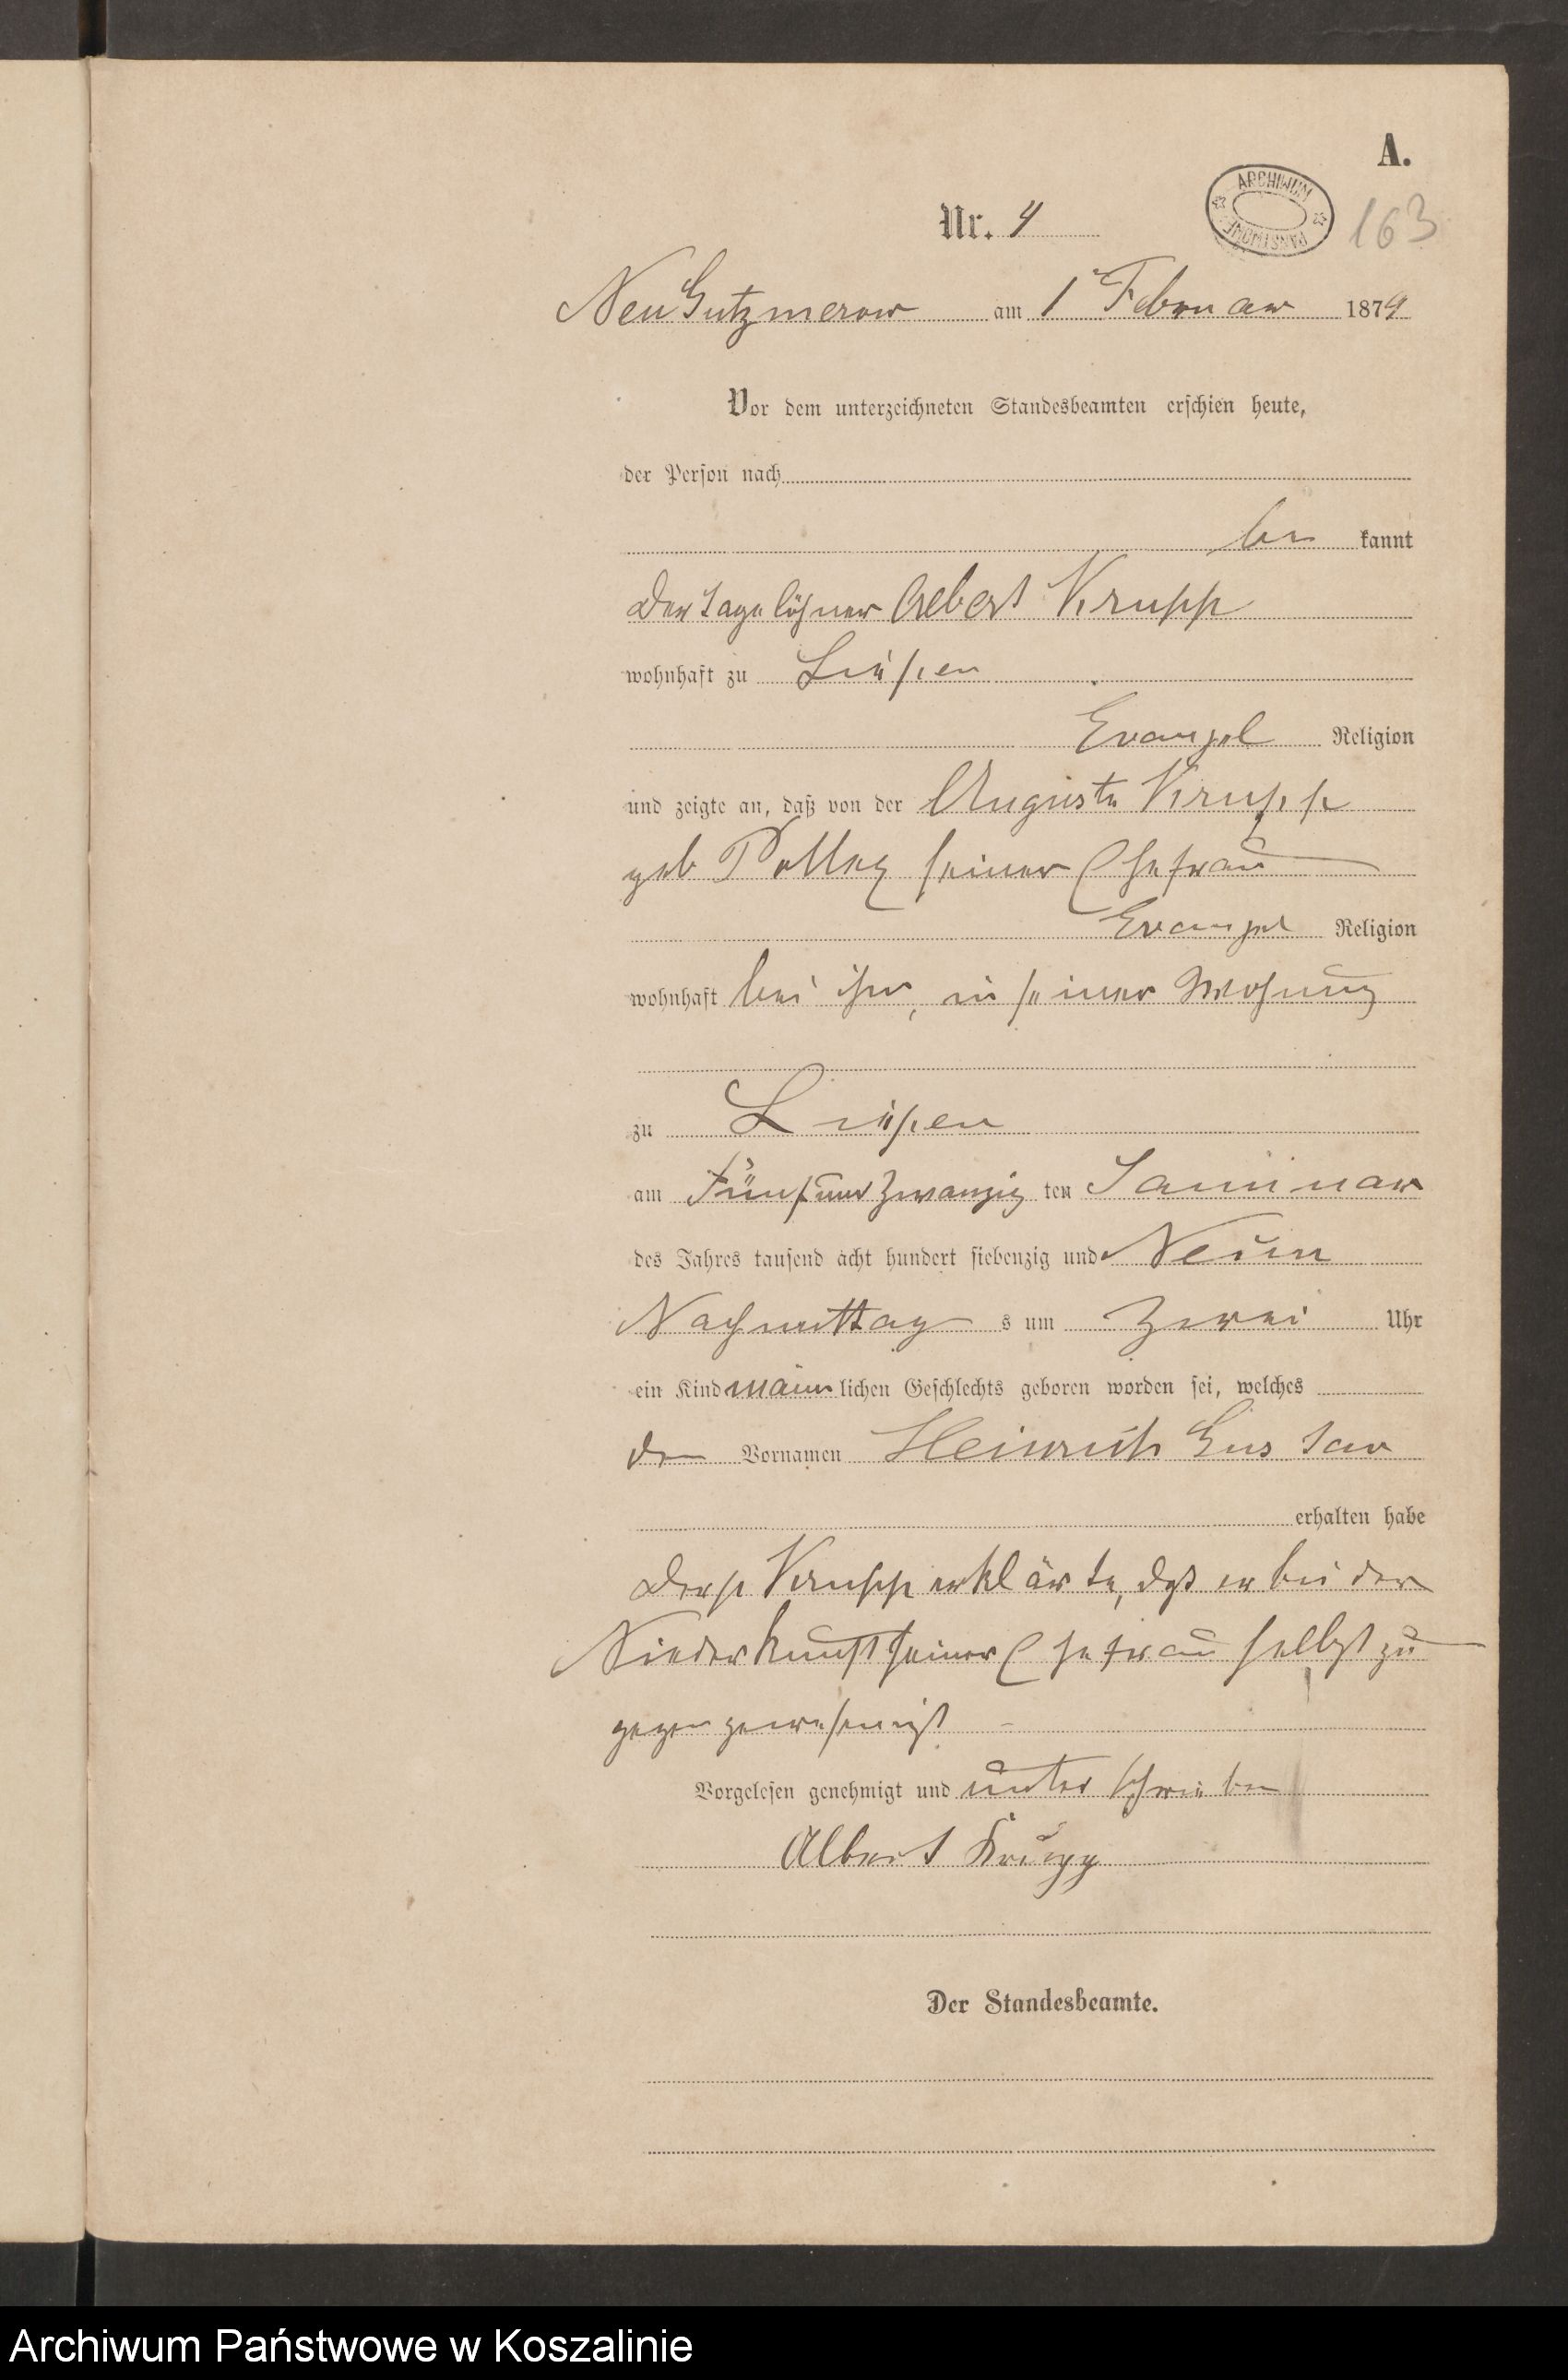 A.
ARCHIWUM PAŃSTWOWE
163
Nr. 4
Neu Gutzmerow am 1 Februar 1879
Vor dem unterzeichneten Standesbeamten erschien heute,
der Person nach
be kannt
der Tagelöhner Albert Krupp
wohnhaft zu Lüssen
Evangel Religion
und zeigte an, daß von der Auguste Krupp
geb seiner Ehefrau
Evangel Religion
wohnhaft bei ihm, in seiner Wohnung
zu Lüssen
am Fünfundzwanzig ten Januar
des Jahres tausend acht hundert siebenzig und Neun
Nachmittag s um Zwei Uhr
ein Kind männ lichen Geschlechts geboren worden sei, welches
den Vornamen Heinrich Gustav
erhalten habe
Krupp erklärte, daß er bei der
Niederkunft seiner Ehefrau selbst zu
gegen gewesen ist
Vorgelesen genehmigt und unterschrieben
Albert Krupp
Der Standesbeamte.
Archiwum Państwowe w Koszalinie